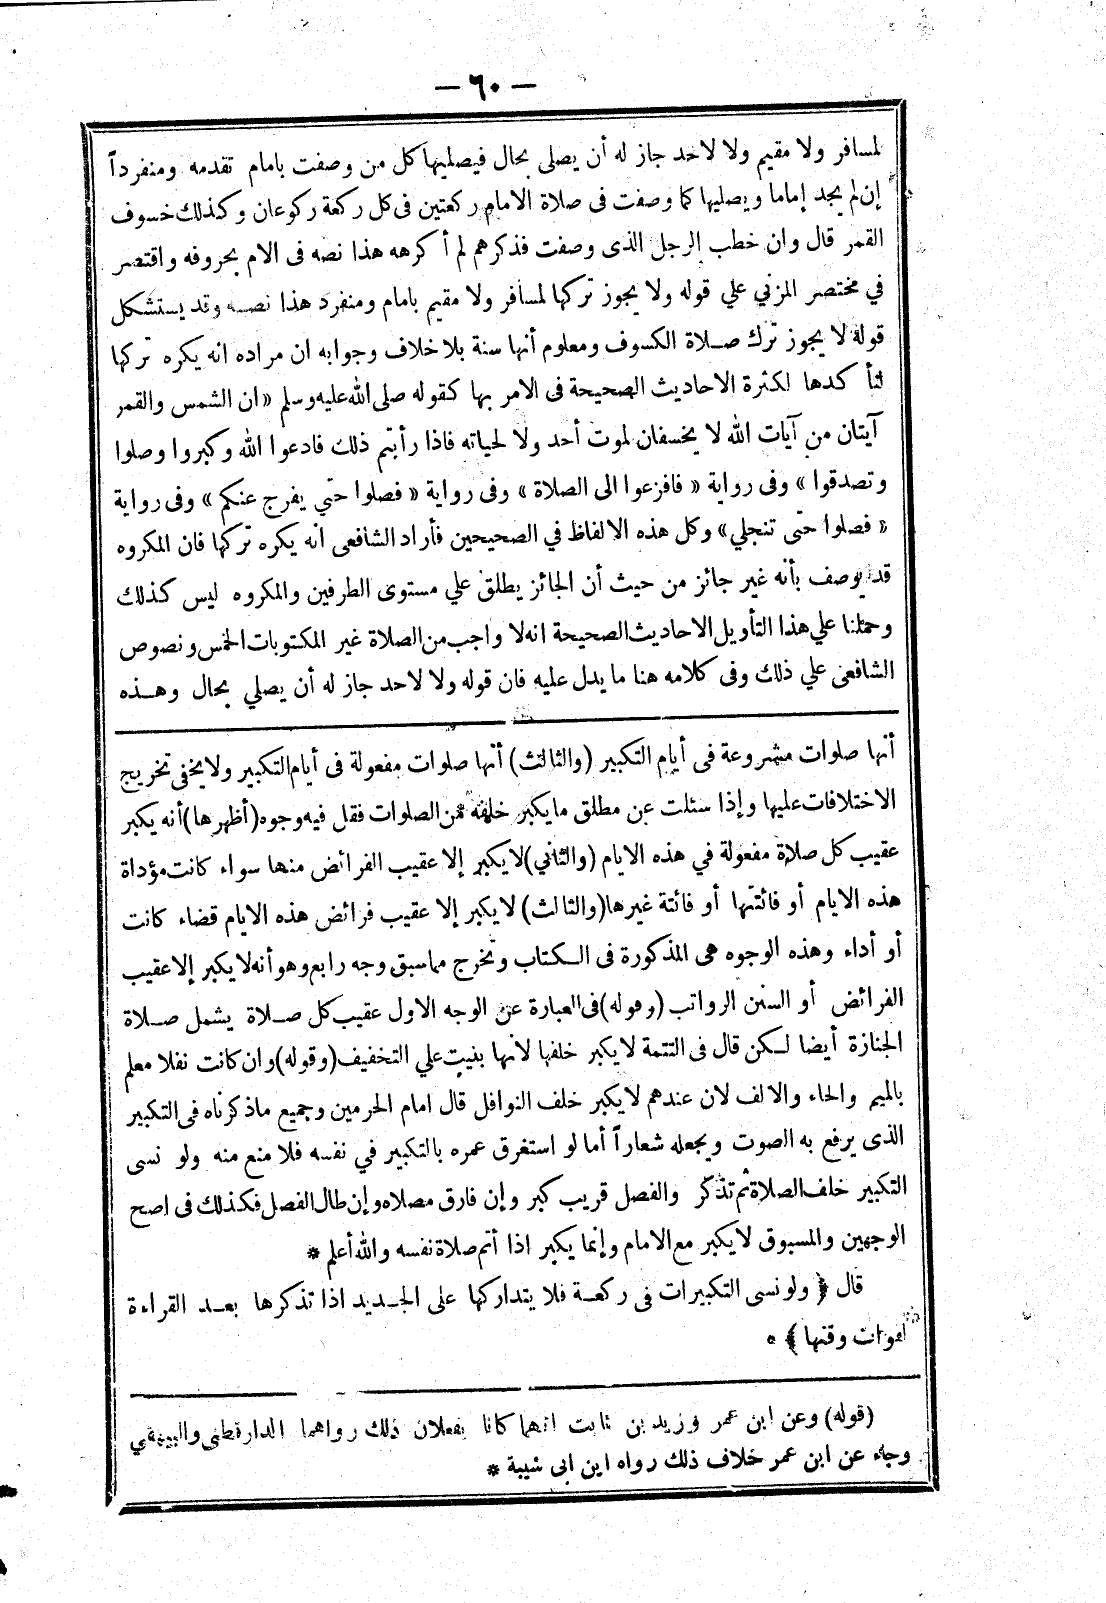 — ٦٠ —
لمسافر ولا مقيم ولا لاحد جاز له أن يصلى بحال فيصليها كل من وصفت بامام تقدمه ومنفرداً
إن لم يجد إماما ويصليها كما وصفت فى صلاة الامام ركعتين فى كل ركعة ركوعان وكذلك خسوف
القمر قال وان خطب الرجل الذى وصفت فذكرهم لم أكرهه هذا نصه فى الام بحروفه واقتصر
في مختصر المزني علي قوله ولا يجوز تركها لمسافر ولا مقيم بامام ومنفرد هذا نصه وقد يستشكل
قوله لا يجوز ترك صلاة الكسوف ومعلوم أنها سنة بلا خلاف وجوابه ان مراده انه يكره تركها
لتأكدها لكثرة الاحاديث الصحيحة فى الامر بها كقوله صلى الله عليه وسلم « ان الشمس والقمر
آيتان من آيات الله لا يخسفان لموت أحد ولا لحياته فاذا رأيتم ذلك فادعوا الله وكبروا وصلوا
وتصدقوا » وفى رواية « فافزعوا الى الصلاة » وفى رواية « فصلوا حتي يفرج عنكم » وفى رواية
« فصلوا حتى تنجلي » وكل هذه الالفاظ في الصحيحين فأراد الشافعى انه يكره تركها فان المكروه
قد يوصف بأنه غير جائز من حيث أن الجائز يطلق علي مستوى الطرفين والمكروه ليس كذلك
وحملنا علي هذا التأويل الاحاديث الصحيحة انه لا واجب من الصلاة غير المكتوبات الخمس ونصوص
الشافعى علي ذلك وفى كلامه هنا ما يدل عليه فان قوله ولا لاحد جاز له أن يصلي بحال وهذه
أنها صلوات مشروعة فى أيام التكبير (والثالث) أنها صلوات مفعولة فى أيام التكبير ولا يخفى تخريج
الاختلافات عليها وإذا سئلت عن مطلق ما يكبر خلفه من الصلوات فقل فيه وجوه (أظهرها) أنه يكبر
عقيب كل صلاة مفعولة في هذه الايام (والثاني) لا يكبر إلا عقيب الفرائض منها سواء كانت مؤداة
هذه الايام أو فائتتها أو فائتة غيرها (والثالث) لا يكبر إلا عقيب فرائض هذه الايام قضاء كانت
أو أداء وهذه الوجوه هى المذكورة فى الكتاب وتخرج مما سبق وجه رابع وهو أنه لا يكبر إلا عقيب
الفرائض أو السنن الرواتب (وقوله) فى العبارة عن الوجه الاول عقيب كل صلاة يشمل صلاة
الجنازة أيضا لكن قال فى التتمة لا يكبر خلفها لانها بنيت علي التخفيف (وقوله) وان كانت نفلا معلم
بالميم والحاء والالف لان عندهم لا يكبر خلف النوافل قال امام الحرمين وجميع ما ذكرناه فى التكبير
الذى يرفع به الصوت ويجعله شعاراً أما لو استغرق عمره بالتكبير في نفسه فلا منع منه ولو نسى
التكبير خلف الصلاة ثم تذكر والفصل قريب كبر وإن فارق مصلاه وإن طال الفصل فكذلك فى اصح
الوجهين والمسبوق لا يكبر مع الامام وإنما يكبر اذا أتم صلاة نفسه والله أعلم *
قال ﴿ ولو نسى التكبيرات فى ركعة فلا يتداركها على الجديد اذا تذكرها بعد القراءة
لفوات وقتها ﴾ *
(قوله) وعن ابن عمر وزيد بن ثابت انهما كانا يفعلان ذلك رواهما الدارقطنى والبيهقي
وجاء عن ابن عمر خلاف ذلك رواه ابن ابى شيبة *